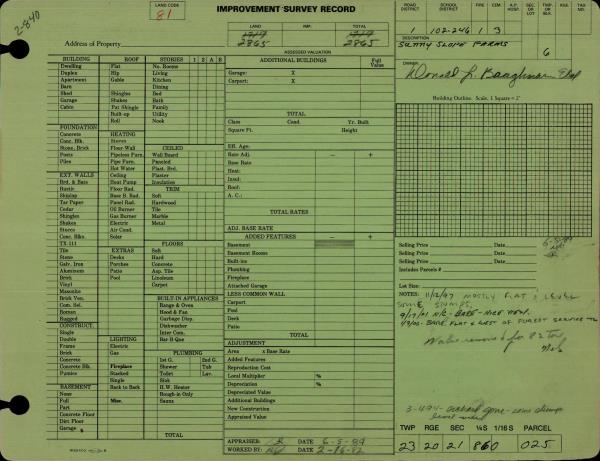 IMPROVEMENT SURVEY RECORD
LAND CODE
81
2-840
LAND IMP. TOTAL
2865 2865
ASSESSED VALUATION
Address of Property
ROAD DISTRICT SCHOOL DISTRICT FIRE CEM. A.P. HOSP. SEC. OR LOT TWP. OR BLK. KULE TAG NO.
1 102-246 1 3
DESCRIPTION
SUNNY SLOPE FARMS
6
OWNER
Donald L. Baughman Etal
Building Outline. Scale, 1 Square = 2'
BUILDING ROOF STORIES 1 2 A B
Dwelling Flat No. Rooms
Duplex Hip Living
Apartment Gable Kitchen
Barn Dining
Shed Shingles Bed
Garage Shakes Bath
Cabin Pat Shingle Family
Built-up Utility
Roll Nook
FOUNDATION
Concrete HEATING
Conc. Blk. Stoves CEILED
Stone, Brick Floor-Wall Wall Board
Posts Pipeless Furn. Paneled
Piles Pipe Furn. Plast. Brd.
Hot Water Plaster
EXT. WALLS Ceiling Insulation
Brd. & Bats Heat Pump TRIM
Rustic Floor Rad. Soft
Shiplap Base B. Rad. Hardwood
Tar Paper Panel Rad. Tile
Cedar Oil Burner Marble
Shingles Gas Burner Metal
Shakes Electric
Stucco Air Cond.
Conc. Blks. Solar FLOORS
TX-111 Soft
Tile EXTRAS Hard
Stone Decks Concrete
Galv. Iron Porches Asp. Tile
Aluminum Patio Linoleum
Brick Pool Carpet
Vinyl
Masonite
Brick Ven. BUILT-IN APPLIANCES
Com. Sel. Range & Oven
Roman Hood & Fan
Rugged Garbage Disp.
CONSTRUCT. Dishwasher
Single Inter Com.
Double LIGHTING Bar-B-Que
Frame Electric
Brick Gas PLUMBING
Concrete 1st G. 2nd G.
Concrete Blk. Fireplace Shower Tub
Pumice Stacked Toilet Lav.
Single Sink
BASEMENT Back to Back H.W. Heater
None Rough-in Only
Full Misc. Sauna
Part
Concrete Floor
Dirt Floor
Garage TOTAL
ADDITIONAL BUILDINGS Full Value
Garage: X
Carport: X
TOTAL
Class Cond. Yr. Built
Square Ft. Height
Eff. Age
Rate Adj. − +
Base Rate
Heat:
Insul:
Roof:
A. C.:
TOTAL RATES
ADJ. BASE RATE
ADDED FEATURES − +
Basement
Basement Rooms
Built-ins
Plumbing
Fireplace
Attached Garage
LESS COMMON WALL
Carport
Pool
Deck
Patio
TOTAL
ADJUSTMENT
Area x Base Rate
Added Features
Reproduction Cost
Local Multiplier %
Depreciation %
Depreciated Value
Additional Buildings
New Construction
Appraised Value
APPRAISER: DATE 6-5-89
WORKED BY: DATE 2-16-82
Selling Price Date
Selling Price Date
Selling Price Date
Includes Parcels #
Lot Size:
NOTES: 11/12/97 MOSTLY FLAT & LEVEL
SOME STUMPS.
9/17/01 N/C - BARE - NICE VIEW.
3-494- orchard gone - some stumps
TWP RGE SEC ¼S 1/16 S PARCEL
23 20 21 860 025